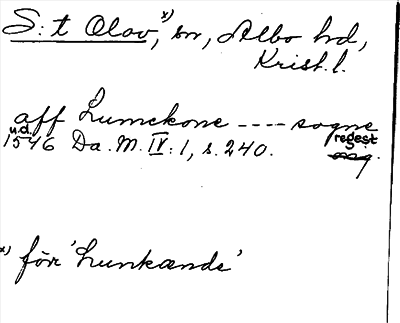 S:t Olav,ˣ⁾ sn, Albo hd,
Krist. l.
aff Lumekone ---- sogne
u.d. regest
1546 Da. M. IV: 1, s. 240.
x) för 'Lunkænde'